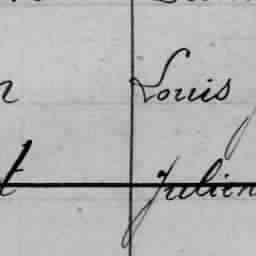 Louis
Julien